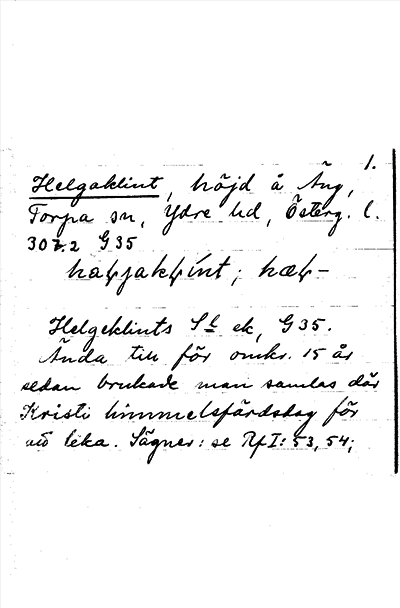 1.
Helgaklint, höjd å Äng,
Torpa sn, Ydre hd, Österg. l.
307.2 G35
haꞎjakꞎínt; hæꞎ-
Helgeklints St ek, G35.
Ända till för omkr. 15 år
sedan brukade man samlas där
Kristi himmelsfärdsdag för
att leka. Sägner: se Rf I: 53, 54;